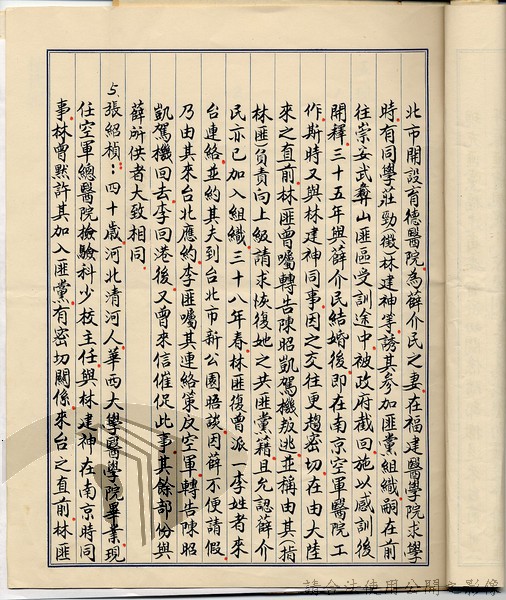 北市開設育德醫院為薛介民之妻在福建醫學院求學
時有同學莊勁徵林建神等誘其參加匪黨組織嗣在前
往崇安武彝山匪區受訓途中被政府截回施以感訓後
開釋三十五年與薛介民結婚後即在南京空軍醫院工
作斯時又與林建神同事因之交往更趨密切在由大陸
來之直前林匪曾囑轉告陳昭凱駕機叛逃並稱由其(指
林匪)負責向上級請求恢復她之共匪黨籍且允認薛介
民亦已加入組織三十八年春林匪復曾派一李姓者來
台連絡並約其夫到台北市新公園晤談因薛不便請假
乃由其來台北應約李匪囑其連絡策反空軍轉告陳昭
凱駕機回去李回港後又曾來信催促此事其餘部份與
薛所供者大致相同
5.張紹楨:四十歲河北清河人華西大學醫學院畢業現
任空軍總醫院檢驗科少校主任與林建神在南京時同
事林曾默許其加入匪黨有密切關係來台之直前林匪
請合法使用公開之影像